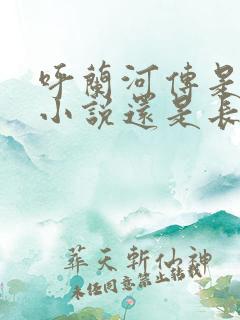 呼蘭河傳是
小説還是長
葬天斬仙神
未任同意禁止轉載